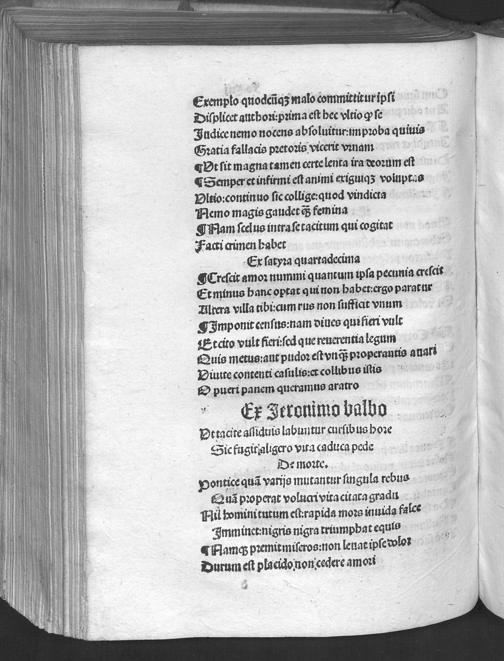 Exemplo quodcũqꝫ malo committitur ipsi
Displicet authori: prima est hec vltio ꝙ se
Iudice nemo nocens absoluitur: improba quiuis
Gratia fallacis pretoris vicerit vrnam
¶ Ut sit magna tamen certe lenta ira deorum est
¶ Semper et infirmi est animi exiguiqꝫ voluptas
Vltio: continuo sic collige: quod vindicta
Nemo magis gaudet qꝫ femina
¶ Nam scelus intra se tacitum qui cogitat
Facti crimen habet
Ex satyra quartadecima
¶ Crescit amor nummi quantum ipsa pecunia crescit
Et minus hanc optat qui non habet: ergo paratur
Altera villa tibi: cum rus non sufficit vnum
¶ Imponit census: nam diues qui fieri vult
Et cito vult fieri: sed que reuerentia legum
Quis metus: aut pudor est vnqꝫ properantis auari
Viuite contenti casulis: et collibus istis
O pueri panem queramus aratro
Ex Ieronimo balbo
Vt tacite assiduis labuntur cursibus hore
Sic fugit aligero vita caduca pede
De morte.
Pontice quã varijs mutantur singula rebus
Quã properat volucri vita citata gradu
Nil homini tutum est: rapida mors inuida falce
Imminet: nigris nigra triumphat equis
¶ Namqꝫ premit miseros: non leuat ipse dolor
Durum est placido non cedere amori